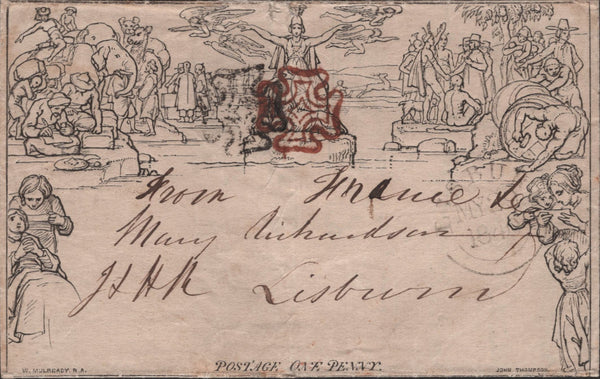 From France to
Mary Richardson
Lisburn
POSTAGE ONE PENNY.
W. MULREADY, R.A.
JOHN THOMPSON